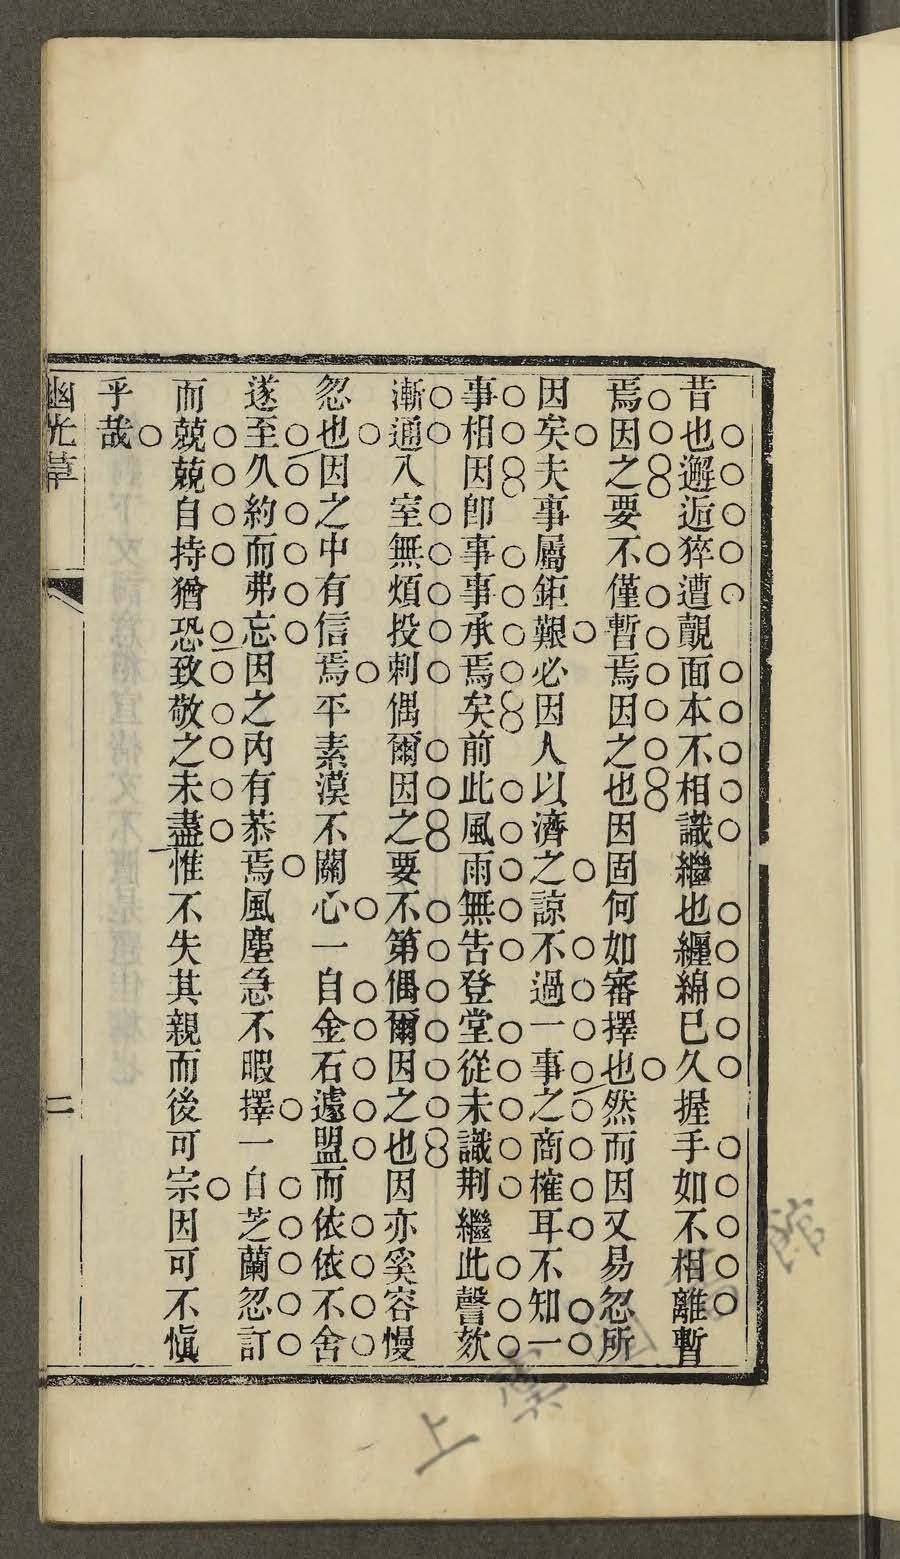 昔也邂逅猝遭覿面本不相識繼也纏綿已久握手如不相離暫
焉因之要不僅暫焉因之也因固何如審擇也然而因又易忽所
因矣夫事屬鉅艱必因人以濟之諒不過一事之商榷耳不知一
事相因卽事事承焉矣前此風雨無吿登堂從未識荆繼此謦欬
漸通入室無煩投刺偶爾因之要不第偶爾因之也因亦奚容慢
忽也因之中有信焉平素漠不關心一自金石遽盟而依依不舍
遂至久約而弗忘因之內有恭焉風塵急不暇擇一自芝蘭忽訂
而兢兢自持猶恐致敬之未盡惟不失其親而後可宗因可不愼
乎哉
幽光草
二
上